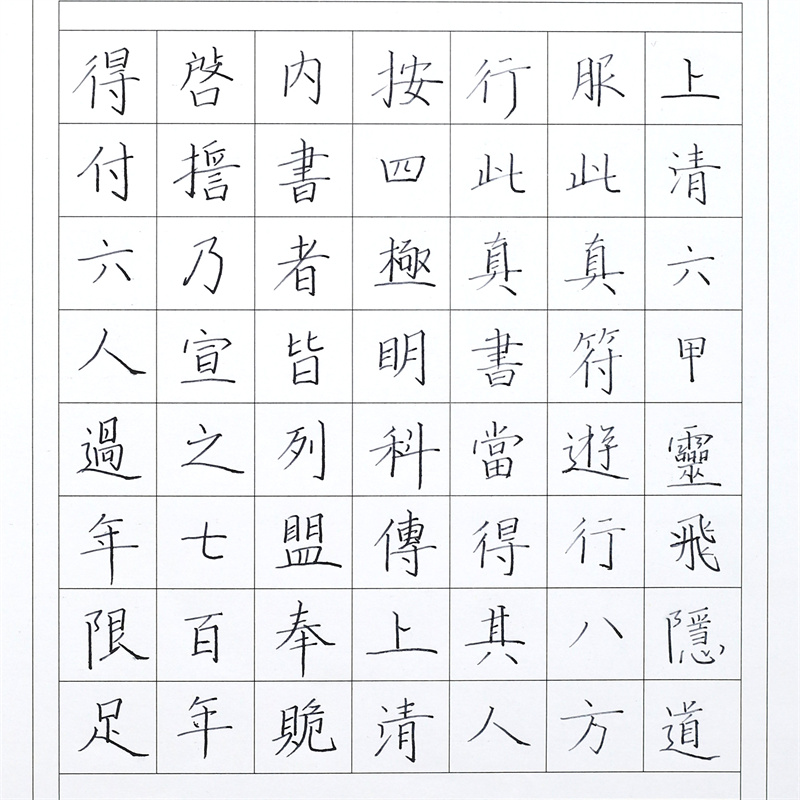 上清六甲靈飛隱道
服此真符遊行八方
行此真書當得其人
按四極明科傳上清
內書者皆列盟奉跪
啓擔乃宣之七百年
得付六人過年限足